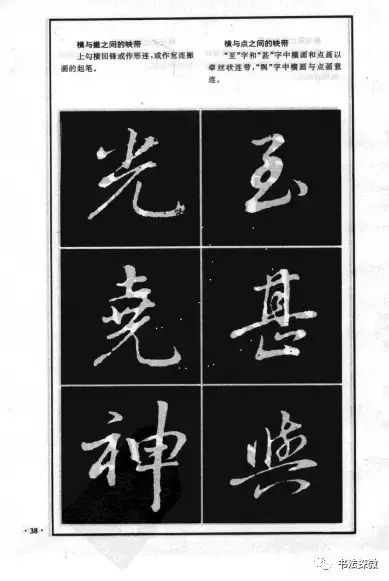 横与撇之间的映带
上勾横回锋或作形连，或作意连撇
画的起笔。
横与点之间的映带
“至”字和“甚”字中横画和点画以
牵丝状连带，“与”字中横画与点画意
连。
光
至
尧
甚
神
與
·38·
书法探教